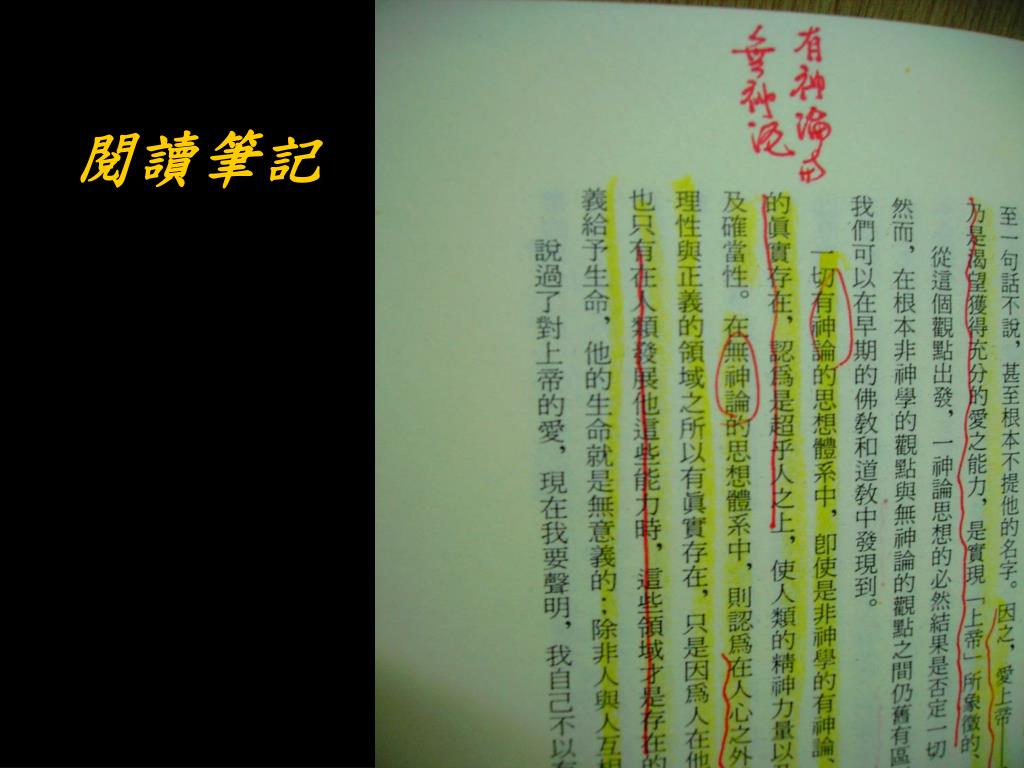 閱讀筆記
有神論與
無神論
至一句話不說，甚至根本不提他的名字。因之，愛上帝
乃是渴望獲得充分的愛之能力，是實現「上帝」所象徵的、
從這個觀點出發，一神論思想的必然結果是否定一切
然而，在根本非神學的觀點與無神論的觀點之間仍舊有區
我們可以在早期的佛教和道教中發現到。
一切有神論的思想體系中，卽使是非神學的有神論、
的眞實存在，認爲是超乎人之上，使人類的精神力量以及
及確當性。在無神論的思想體系中，則認爲在人心之外
理性與正義的領域之所以有眞實存在，只是因爲人在他
也只有在人類發展他這些能力時，這些領域才是存在的
義給予生命，他的生命就是無意義的；除非人與人互相
說過了對上帝的愛，現在我要聲明，我自己不以